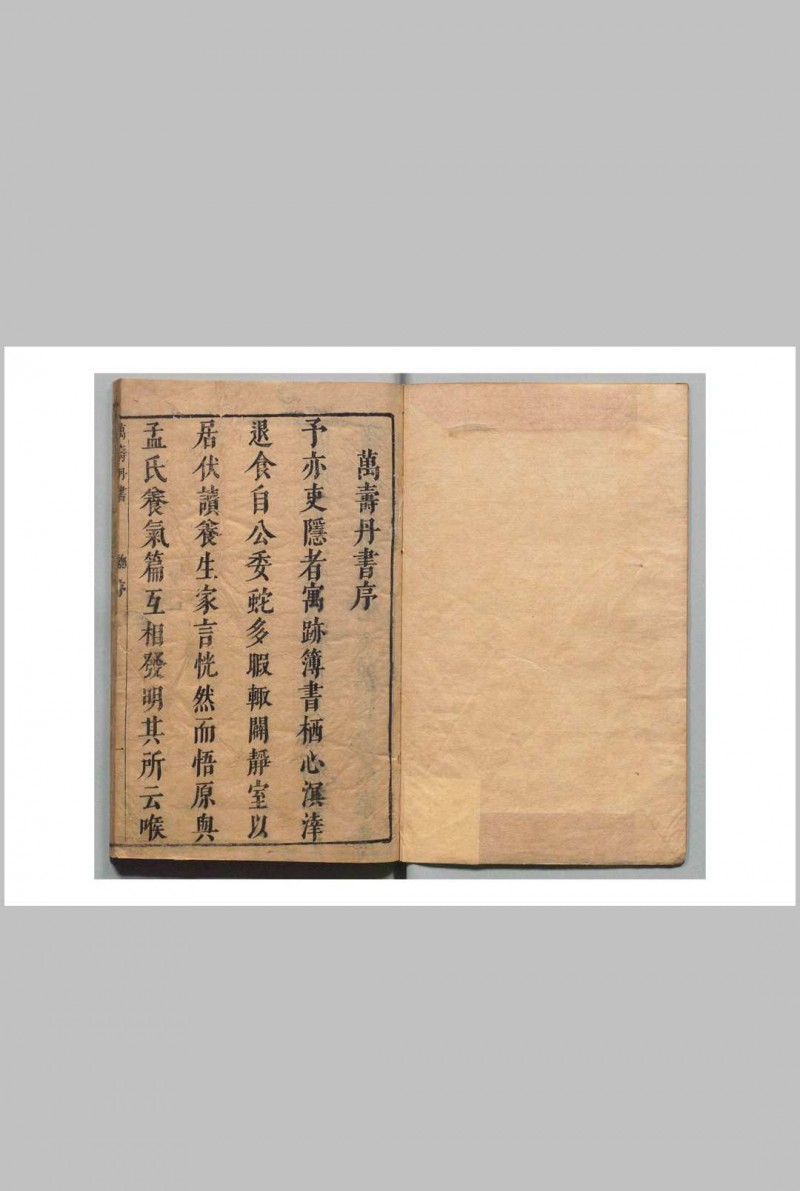 萬壽丹書序
予亦吏隱者寓跡簿書栖心溟涬
退食自公委蛇多暇輙闢靜室以
居伏讀養生家言恍然而悟原與
孟氏養氣篇互相發明其所云喉
萬壽丹書 序